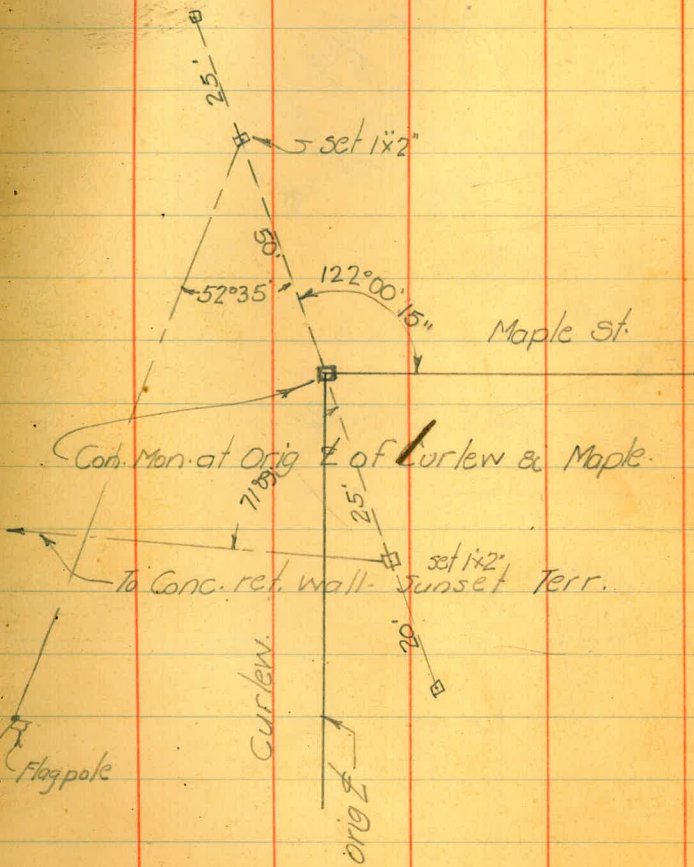 25'
set 1"x2"
50'
52°35'
122°00'
15"
Maple St.
Con. Mon. at Orig ℄ of Curlew & Maple.
25'
set 1"x2"
To Conc. ret. wall - Sunset Terr.
20'
Curlew.
orig ℄
Flagpole